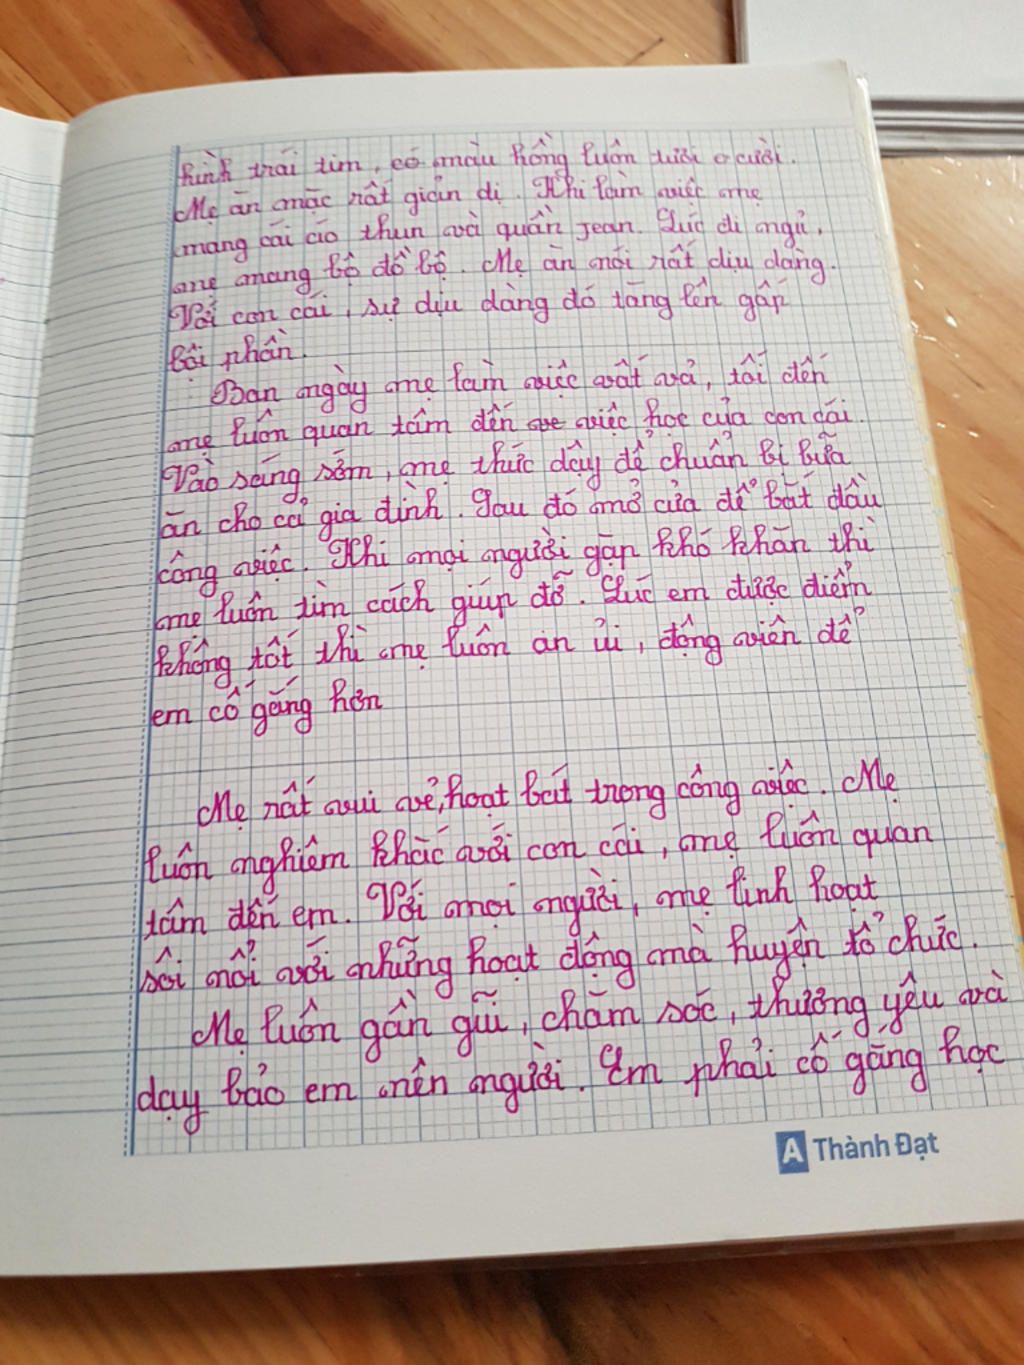 hình trái tim, có màu hồng luôn tươi cười.
Mẹ ăn mặc rất giản dị. Khi làm việc mẹ
mang cái áo thun và quần Jean. Lúc đi ngủ,
mẹ mang bộ đồ bộ. Mẹ ăn nói rất dịu dàng.
Với con cái, sự dịu dàng đó tăng lên gấp
bội phần.
Ban ngày mẹ làm việc vất vả, tối đến
mẹ luôn quan tâm đến việc học của con cái.
Vào sáng sớm, mẹ thức dậy để chuẩn bị bữa
ăn cho cả gia đình. Sau đó mở cửa để bắt đầu
công việc. Khi mọi người gặp khó khăn thì
mẹ luôn tìm cách giúp đỡ. Lúc em được điểm
không tốt thì mẹ luôn an ủi, động viên để
em cố gắng hơn
Mẹ rất vui vẻ, hoạt bát trong công việc. Mẹ
luôn nghiêm khắc với con cái, mẹ luôn quan
tâm đến em. Với mọi người, mẹ linh hoạt
sôi nổi với những hoạt động mà huyện tổ chức.
Mẹ luôn gần gũi, chăm sóc, thương yêu và
dạy bảo em nên người. Em phải cố gắng học
A Thành Đạt